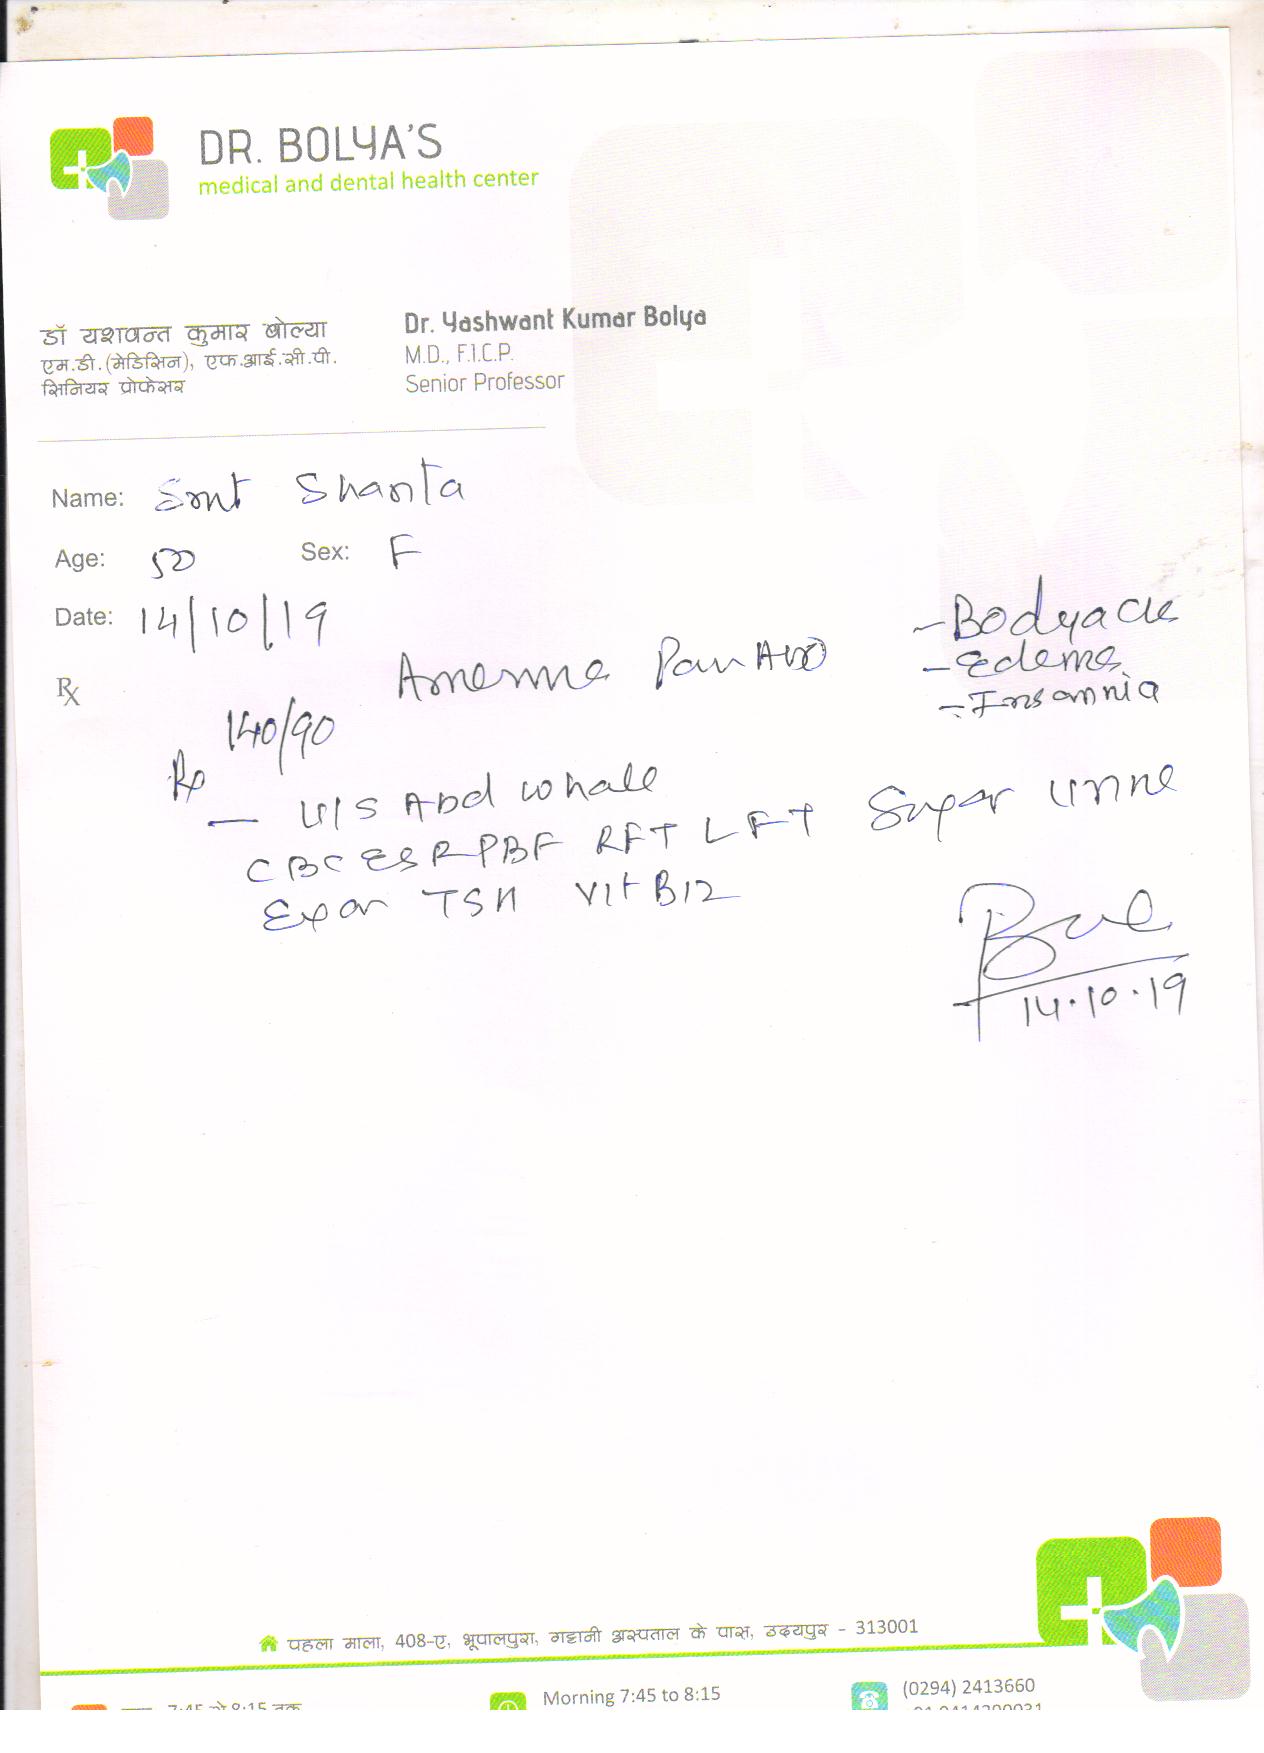 DR. BOLYA'S
medical and dental health center
डॉ यशवन्त कुमार बोल्या
एम.डी.(मेडिसिन), एफ.आई.सी.पी.
सिनियर प्रोफेसर
Dr. Yashwant Kumar Bolya
M.D., F.I.C.P.
Senior Professor
Name: Smt Shanta
Age: 50 Sex: F
Date: 14/10/19
- Bodyache
- Edema
- Insomnia
Rx
Anemia Pain Abd
140/90
Rp
- U/S Abd whole
CBC ESR PBF RFT LFT Sugar Urine
Exam TSH Vit B12
14.10.19
पहला माला, 408-ए, भूपालपुरा, गट्टानी अस्पताल के पास, उदयपुर - 313001
7:45 से 8:15 तक
Morning 7:45 to 8:15
(0294) 2413660